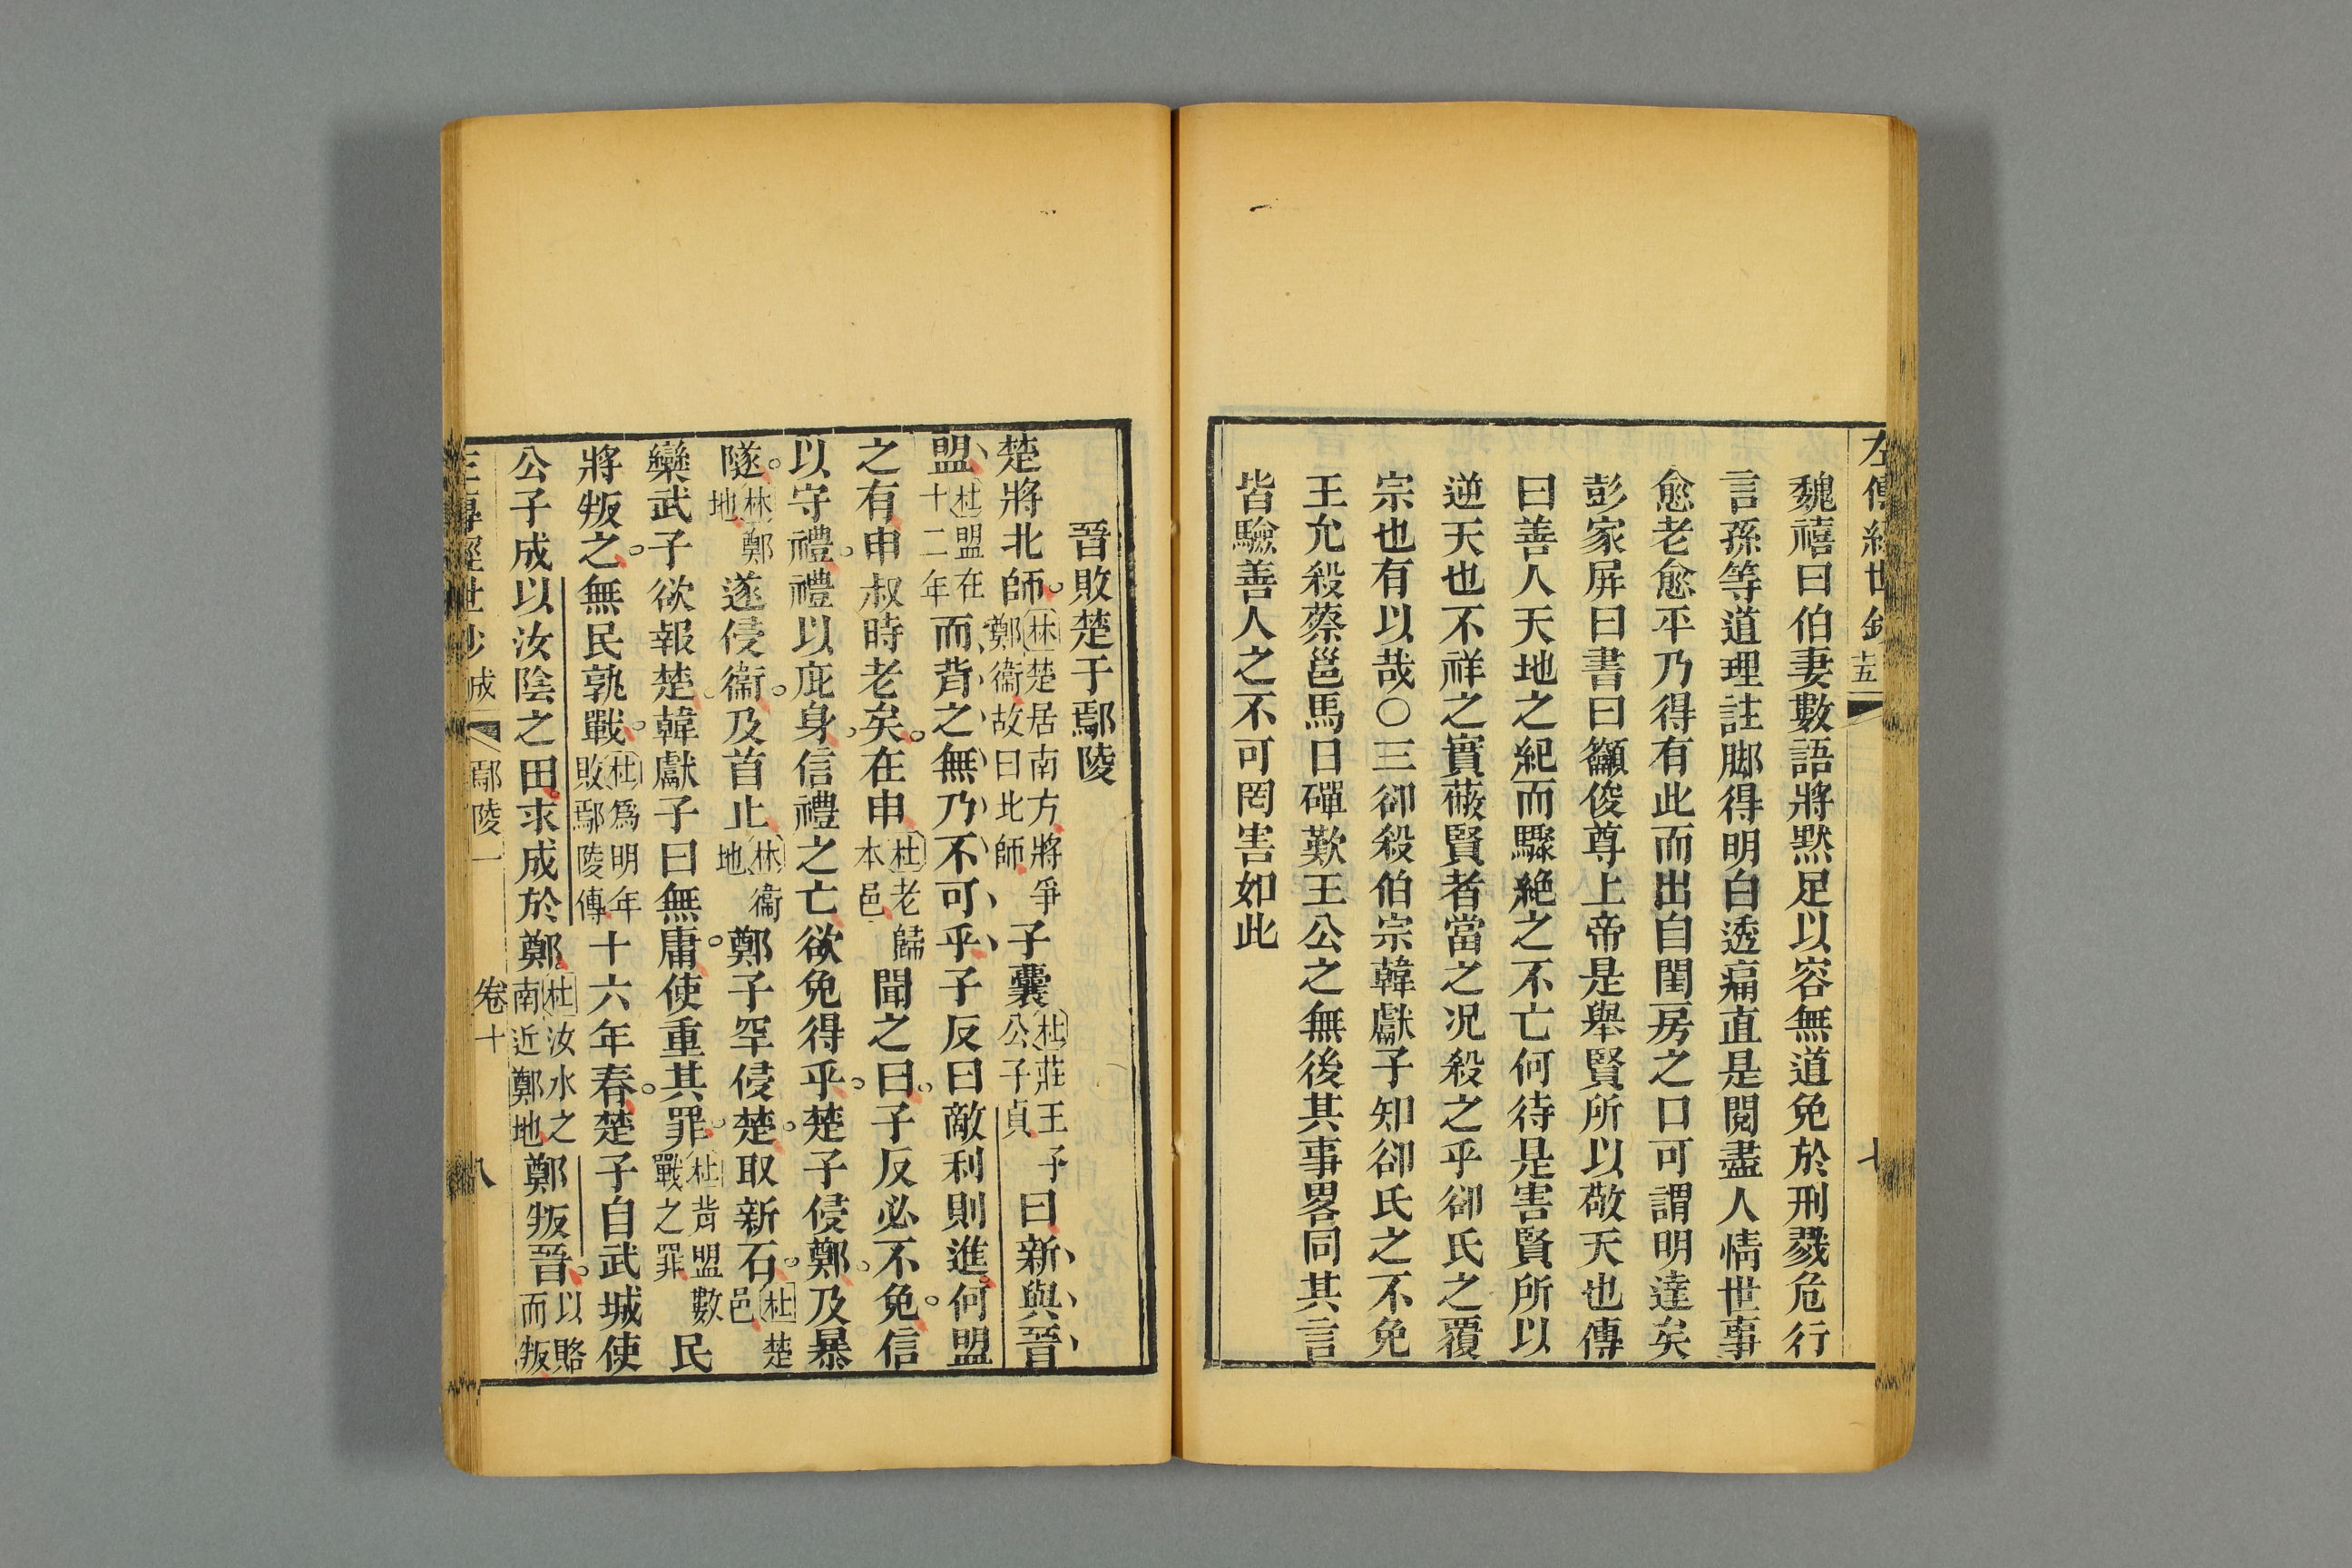 左傳經世鈔 十五 七
魏禧曰伯妻數語將默足以容無道免於刑戮危行
言孫等道理註脚得明白透痛直是閱盡人情世事
愈老愈平乃得有此而出自閨房之口可謂明達矣
彭家屏曰書曰籲俊尊上帝是舉賢所以敬天也傳
曰善人天地之紀而驟絕之不亡何待是害賢所以
逆天也不祥之實蔽賢者當之况殺之乎郤氏之覆
宗也有以哉○三郤殺伯宗韓獻子知郤氏之不免
王允殺蔡邕馬日磾歎王公之無後其事畧同其言
皆驗善人之不可罔害如此
晉敗楚于鄢陵
楚將北師林楚居南方將爭鄭衞故曰北師子囊杜莊王子公子貞曰新與晉
盟杜盟在十二年而背之無乃不可乎子反曰敵利則進何盟
之有申叔時老矣在申杜老歸本邑聞之曰子反必不免信
以守禮禮以庇身信禮之亡欲免得乎楚子侵鄭及暴
隧林鄭地遂侵衞及首止林衞地鄭子罕侵楚取新石杜楚邑
欒武子欲報楚韓獻子曰無庸使重其罪杜背盟數戰之罪民
將叛之無民孰戰杜爲明年敗鄢陵傳十六年春楚子自武城使
公子成以汝陰之田求成於鄭杜汝水之南近鄭地鄭叛晉以賂而叛
左傳經世鈔 成 鄢陵一 卷十 八